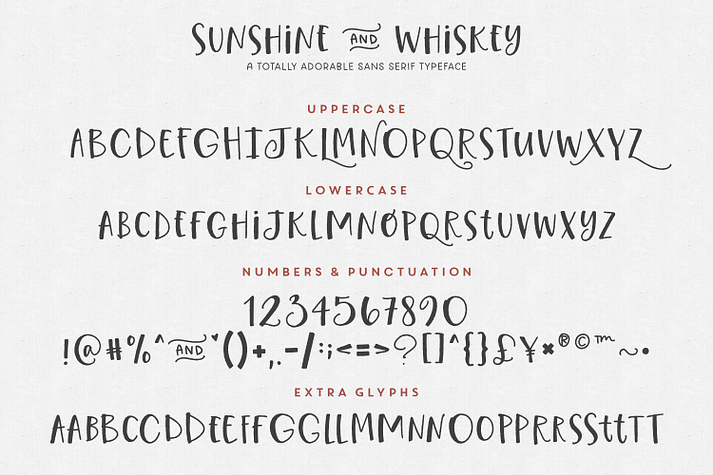 SUNSHiNE AND WHiSKEY
A TOTALLY ADORABLE SANS SERIF TYPEFACE
UPPERCASE
ABCDEFGHIJKLMNOPQRSTUVWXYZ
LOWERCASE
ABCDEFGHiJKLMNOPQRStUVWXYZ
NUMBERS & PUNCTUATION
1234567890
!@#%^AND'()+,.-/:;<=>?[]^{}£¥×®©™~•
EXTRA GLYPHS
AABBCCDDEEFFGGLLMMNNOOPPRRSSttTT